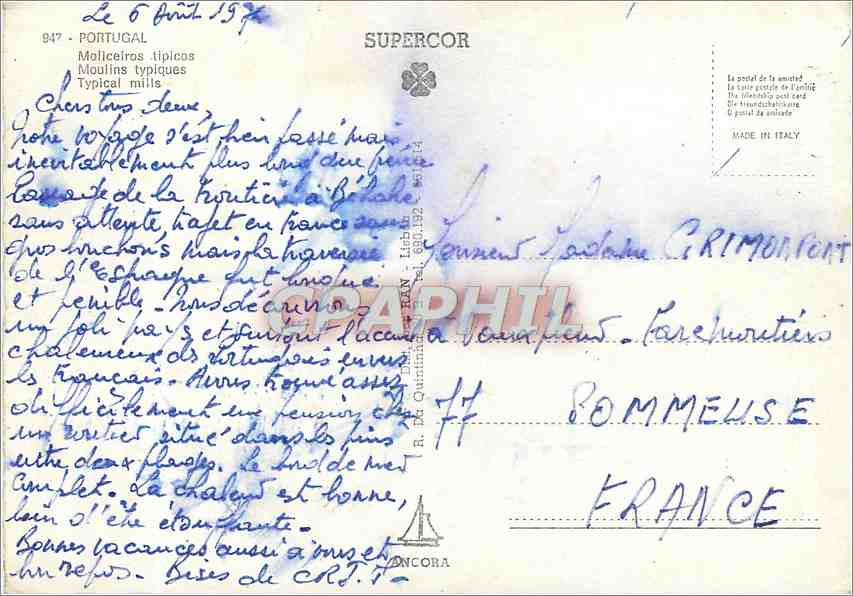 Le 6 Août 197
947 - PORTUGAL
Moliceiros tipicos
Moulins typiques
Typical mills
SUPERCOR
La postal de la amistad
La carte postale de l'amitié
The friendship post card
Die freundschaftskarte
O postal da amizade
MADE IN ITALY
Chers tous deux,
Notre voyage s'est bien passé mais
inévitablement plus long que prévu
Passage de la frontière à Béhobie
sans attente, trajet en France sans
gros bouchons mais la traversée
de l'Espagne fut longue
et pénible. Nous découvrons
un joli pays et surtout l'accueil
chaleureux des portugais envers
les français. Avons trouvé assez
difficilement une pension chez
un routier situé dans les pins
entre deux plages. Le bord de mer
complet. La chaleur est bonne,
loin d'être étouffante.
Bonnes vacances aussi à vous et
bon repos. Bises de C.R.J.T.
RAN - Lisboa
R. Da Quintinha tel. 690.192
CPAPHIL
Monsieur Madame GRIMONPONT
Faremoutiers
77 POMMEUSE
FRANCE
ANCORA